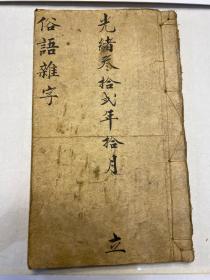 光緒叁拾弍年拾月 立
俗語雜字